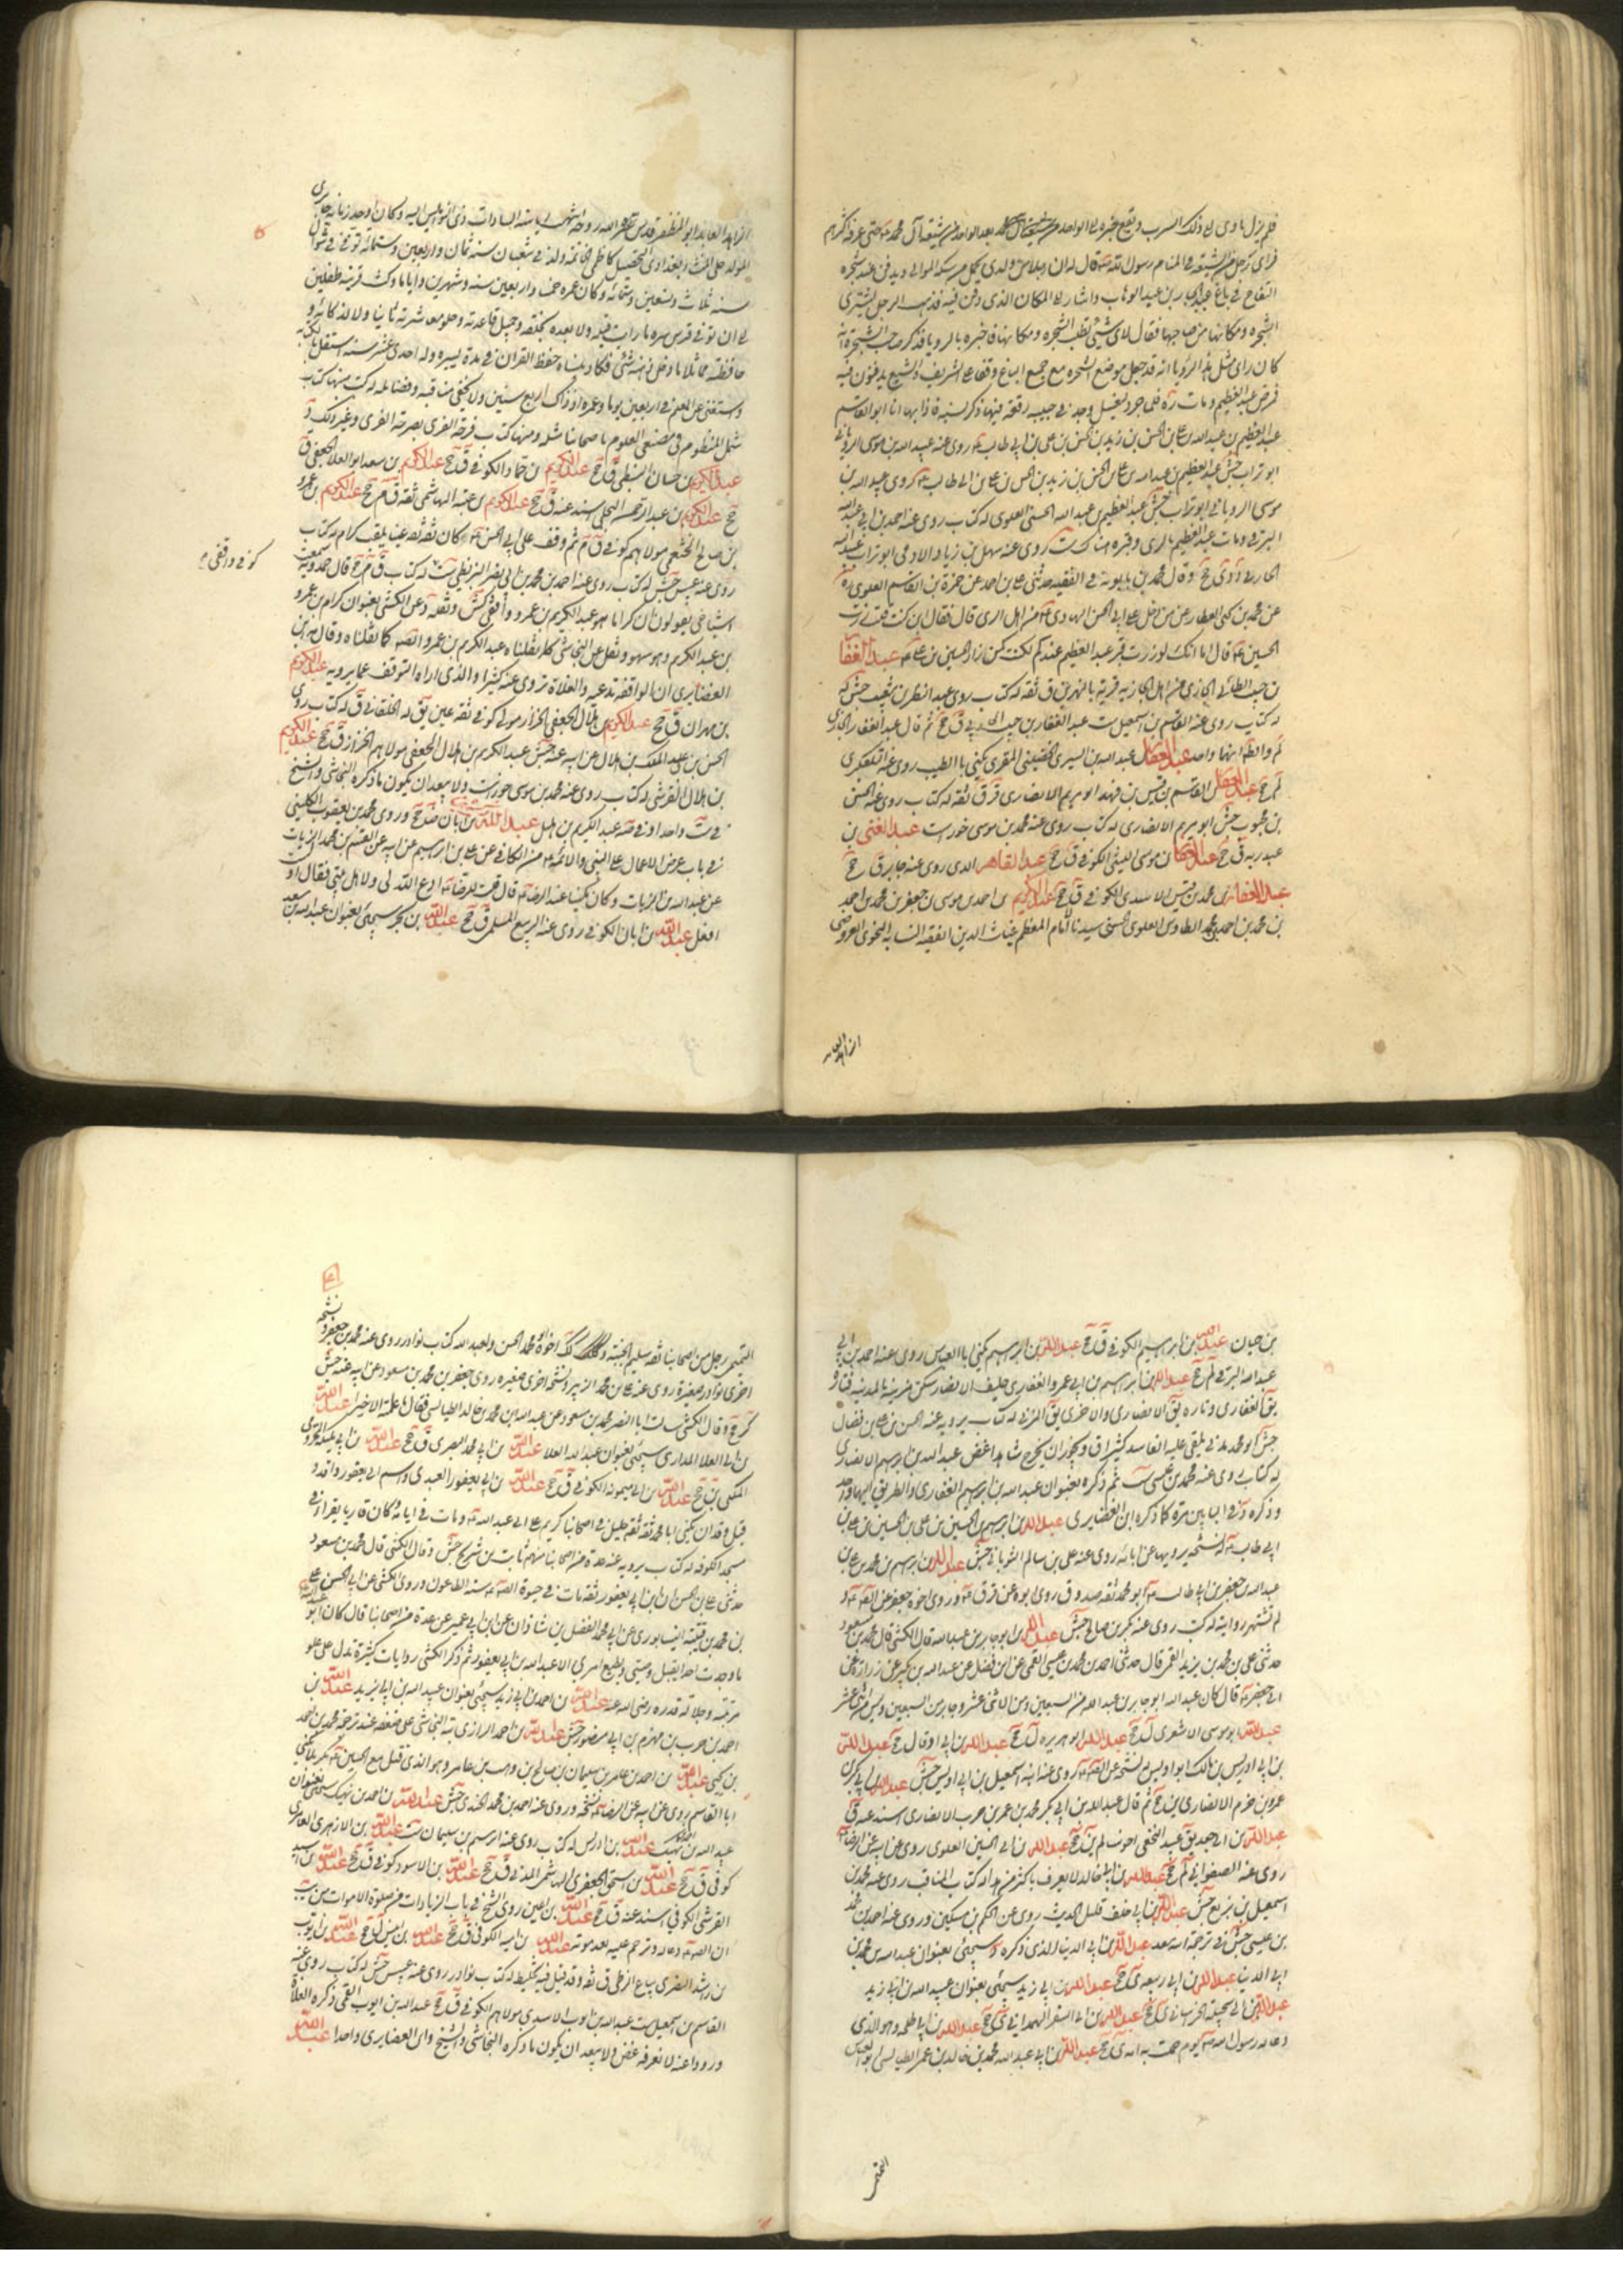 فلم يزل ياوى الى ذلك السرب ويقع خبره الى الواحد بعد الواحد من شيعة آل محمد حتى عرفه اكثرهم
فراى رجل من الشيعة فى المنام رسول الله قال له ان رجلا من ولدى يحمل من سكة الموالى ويدفن عند شجرة
التفاح فى باغ عبد الجبار بن عبد الوهاب واشار الى المكان الذى دفن فيه فذهب الرجل ليشترى
الشجرة ومكانها من صاحبها فقال لاى شئ تطلب الشجرة ومكانها فاخبره بالرويا فذكر صاحب الشجرة انه
كان راى مثل هذا الرؤيا وانه قد جعل موضع الشجرة مع جميع الباغ وقفا على الشريف والشيعة يدفنون فيه
فمرض عبد العظيم ومات ره فلما جرد ليغسل وجد فى جيبه رقعة فيها ذكر نسبه فاذا بها انا ابو القاسم
عبد العظيم بن عبد الله بن على بن الحسن بن زيد بن الحسن بن على بن ابى طالب روى عنه عبيد الله بن موسى الرويانى
ابو تراب جش عبد العظيم بن عبد الله بن على بن الحسن بن زيد بن الحسن بن على بن ابى طالب روى عبيد الله بن
موسى الرويانى ابو تراب جش عبد العظيم بن عبد الله الحسنى العلوى له كتاب روى عنه احمد بن ابى عبد الله
البرقى ومات عبد العظيم بالرى وقبره هناك ست روى عنه سهل بن زياد الادمى ابو تراب عبيد الله
الحارثى دى ى جخ وقال محمد بن بابويه فى الفقيه حدثنى على بن احمد عن حمزة بن القاسم العلوى ره
عن محمد بن يحيى العطار عمن دخل على ابى الحسن الهادى من اهل الرى قال فقال اين كنت فقلت زرت
الحسين قال اما انك لو زرت قبر عبد العظيم عندكم لكنت كمن زار الحسين بن على عبد الغفار
بن حبيب الطائى الجازى من اهل الجازية قرية بالنهرين ق ثقة له كتاب روى عبد النضر بن شعيب جش
له كتاب روى عنه القاسم بن اسمعيل ست عبد الغفار بن حبيب ق جخ ثم قال عبد الغفار الجازى
لم والظ انهما واحد عبد الغفار عبد الله بن السرى الحضينى المقرى يكنى با الطيب روى عنه التلعكبرى
لم جخ عبد الغفار بن القاسم بن قيس بن فهد ابو مريم الانصارى قر ق ثقة له كتاب روى عنه الحسن
بن محبوب جش ابو مريم الانصارى له كتاب روى عنه محمد بن موسى خوراء ست عبد الغنى بن
عبد ربه ق جخ موسى الليثى الكوفى ق جخ عبد القاهر الذى روى عنه جابر ق جخ
عبد الغفار بن محمد بن قيس الاسدى الكوفى ق جخ عبد الكريم بن احمد بن موسى بن جعفر بن محمد بن احمد
بن محمد بن احمد بن محمد الطاوس العلوى الحسنى سيدنا الامام المعظم غياث الدين الفقيه النسابه النحوى العروضى
الزاهد العابد
الزاهد العابد ابو المظفر قدس الله روحه انتهت رياسة السادات وذى النواميس اليه وكان اوحد زمانه حايرى
المولد حلى المنشا بغدادى التحصيل كاظمى الخاتمة ولد فى شعبان سنة ثمان واربعين وستمائه توفى فى شوال
سنة ثلاث وتسعين وستمائه وكان عمره خمسا واربعين سنة وشهرين واياما وكنت قرينه طفلين
الى ان توفى قدس سره ما رايت قبله ولا بعده كخلقه وجميل قاعدته وحلو معاشرته ثانيا ولا لذكائه و
حافظته مماثلا ما دخل ذهنه شئ فكاد ينساه حفظ القران فى مدة يسيرة وله احدى عشر سنة استقل بالكتابة
واستغنى عن المعلم فى اربعين يوما وعمره اذ ذاك اربع سنين ولا يحصى مناقبه وفضائله له كتب منها كتاب
شمل المنظوم فى مصنفى العلوم ما لاصحابنا مثله ومنها كتاب فرحة الغرى بصرحة الغرى وغير ذلك
عبد الكريم بن حسان النبطى ق جخ عبد الكريم بن حماد الكوفى ق جخ عبد الكريم بن سعد ابو العلا الجعفى ق
جخ عبد الكريم بن عبد الرحمن البجلى اسند عنه ق جخ عبد الكريم بن عتبه الهاشمى ثقة ق م جخ عبد الكريم بن عمرو
بن صالح الخثعمى مولاهم كوفى ق م ثم وقف على ابى الحسن كان ثقة ثقة عينا يلقب كرام له كتاب
كوفى واقفى
روى عنه عبيس جش له كتاب روى عنه احمد بن محمد بن ابى نصر البزنطى ست له كتاب ق م جخ قال حمدويه سمعت
اشياخى يقولون ان كراما هو عبد الكريم بن عمرو واقفى كش وثقه د عن الكشى بعنوان كرام بن عمرو
بن عبد الكريم وهو سهو ونقل عن النجاشى كما نقلناه عبد الكريم بن عمرو الصه كما نقلناه وقال ابن
الغضايرى ان الواقفة تدعيه والغلاة تروى عنه كثيرا والذى اراه التوقف عما يرويه عبد الكريم
بن مهران ق جخ عبد الكريم بن هلال الجعفى الخزاز مولى كوفى ثقة عين يق له الخلقانى ق له كتاب روى
الحسن بن على بن عبد الملك بن هلال عن ابيه عنه جش عبد الكريم بن هلال الجعفى مولاهم الخزاز ق جخ عبد الكريم
بن هلال القرشى له كتاب روى عنه محمد بن موسى خوراء ست ولا يبعد ان يكون ما ذكره النجاشى والشيخ
فى ست واحدا عبد الكريم بن هليل عبد الله بن ابان ضا جخ وروى محمد بن يعقوب الكلينى
فى باب عرض الاعمال على النبى والائمة من الكافى عن على بن ابراهيم عن ابيه عن القاسم بن محمد الزيات
عن عبد الله بن ابان الزيات وكان مكينا عند الرضا قال قلت للرضا ادع الله لى ولاهل بيتى فقال او
افعل عبد الله بن ابان الكوفى روى عنه الربيع المسلى ق جخ عبد الله بن بجر سيجئ بعنوان عبد الله بن سعد
بن حيان عبد الله بن ابراهيم الكوفى ق جخ عبد الله بن ابراهيم يكنى ابا العباس روى عنه احمد بن ابى
عبد الله البرقى لم جخ عبد الله بن ابراهيم بن ابى عمرو الغفارى حليف الانصار سكن مزينة بالمدينة فتارة
يق الغفارى وتارة يق الانصارى والاخرى يق المزنى له كتاب يرويه عنه الحسن بن على بن فضال
جش ابو محمد مدنى يلقى عليه الفاسد كثيرا ق ويجوز ان يخرج شاهدا غض عبد الله بن ابراهيم الانصارى
له كتاب روى عنه محمد بن عيسى ست ثم ذكره بعنوان عبد الله بن ابراهيم الغفارى والطريق اليهما واحد
وذكره د فى البابين مرة كما ذكره ابن الغضايرى عبد الله بن ابراهيم بن الحسين بن على بن الحسين بن على بن
ابى طالب له نسخة يرويها عن ابائه روى عنه على بن سالم الثوبانى جش عبد الله بن ابراهيم بن محمد بن على بن
عبد الله بن جعفر بن ابى طالب ابو محمد ثقة صدوق روى ابوه عن قر ق وروى اخوه جعفر عن الصه
لم تشتهر روايته له كتب روى عنه بكر بن صالح جش عبد الله ابو جابر بن عبد الله قال الكشى قال محمد بن مسعود
حدثنى على بن محمد بن يزيد القمى قال حدثنى احمد بن محمد بن عيسى القمى عن ابن فضل عن عبد الله بن بكير عن زرارة عن
ابى جعفر قال كان عبد الله ابو جابر بن عبد الله من السبعين ومن الاثنى عشر وجابر من السبعين وليس من الاثنى عشر
عبد الله ابو موسى الاشعرى ل جخ عبد الله ابو هريره ل جخ عبد الله بن ابى اوفى ل جخ عبد الله
بن ابى اويس بن مالك ابو اويس له نسخة عن الصه روى عنه ابنه اسمعيل بن ابى اويس جش عبد الله بن ابى بكر بن
عمرو بن حزم الانصارى ين جخ ثم قال عبد الله بن ابى بكر محمد بن عمر بن حرب الانصارى اسند عنه ق
عبد الله بن ابى جعد يق عبيد النخعى اخو سالم ين جخ عبد الله بن ابى الحسين العلوى روى عن ابيه عن الرضا
روى عنه الصفوانى لم جخ عبد الله بن ابى خالد لا يعرف باكثر من هذا له كتاب المناقب روى عنه محمد بن
اسمعيل بن بزيع جش عبد الله بن ابى خلف قليل الحديث روى عن الحكم بن مسكين وروى عنه احمد بن محمد
بن عيسى جش فى ترجمة ابنه سعد عبد الله بن ابى الدنيا الذى ذكره د سيجئ بعنوان عبد الله بن محمد بن
ابى الدنيا عبد الله بن ابى ربيعه ى جخ عبد الله بن ابى زيد سيجئ بعنوان عبيد الله بن ابى زيد
عبد الله بن ابى سخيله الخراسانى ى جخ عبد الله بن ابى السفر الهمدانى ى جخ عبد الله بن ابى طلحه وهو الذى
دعا له رسول الله يوم حملت به امه ى جخ عبد الله بن ابى عبد الله محمد بن خالد بن عمر الطيالسى ابو العباس
التميمى
التميمى رجل من اصحابنا ثقة سليم الجنبة وكذلك اخوه ابو محمد الحسن ولعبد الله كتاب نوادر روى عنه محمد بن جعفر ونسخة
اخرى نوادر صغيرة روى عنه على بن محمد الزبير ونسخة اخرى صغيرة روى جعفر بن محمد بن مسعود عن ابيه عنه جش
كر جخ وقال الكشى سالت ابا النضر محمد بن مسعود عن عبد الله بن محمد بن خالد الطيالسى فقال ما علمته الا خيرا عبد الله
بن ابى العلا المدارى سيجئ بعنوان عبد الله العلا عبد الله بن ابى محمد البصرى ق جخ عبد الله بن ابى مليكة المخزومى
المكى ين جخ عبد الله بن ابى ميمونه الكوفى ق جخ عبد الله بن ابى يعفور العبدى واسم ابى يعفور واقد و
قيل وقدان يكنى ابا محمد ثقة ثقة جليل فى اصحابنا كريم على ابى عبد الله ومات فى ايامه وكان قاريا يقرا فى
مسجد الكوفة له كتاب يرويه عنه عدة من اصحابنا منهم ثابت بن شريح جش وقال الكشى قال محمد بن مسعود
حدثنى على بن الحسن ان ابن ابى يعفور ثقة مات فى حيوة الصه سنة الطاعون وروى الكشى عن ابى الحسن على
بن محمد بن قتيبة النيسابورى عن ابى محمد الفضل بن شاذان عن ابن ابى عمير عن عدة من اصحابنا قال كان ابو عبد الله
ما وجدت احدا يقبل وصيتى ويطيع امرى الا عبد الله بن ابى يعفور ثم ذكر الكشى روايات كثيرة تدل على علو
مرتبته وجلالة قدره رضى الله عنه عبد الله بن احمد بن ابى زيد سيجئ بعنوان عبيد الله بن ابى زيد عبد الله بن
احمد بن حرب بن مهزم بن ابى منصور جش عبد الله بن احمد الرازى نبه النجاشى على ضعفه عند ترجمة محمد بن احمد
بن يحيى عبد الله بن احمد بن عامر بن سليمان بن صالح بن وهب بن عامر وهو الذى قتل مع الحسين بكربلا يكنى
ابا القاسم روى عن ابيه عن الرضا نسخة وروى عنه احمد بن محمد الجندى جش عبد الله بن احمد بن نهيك سيجئ بعنوان
عبيد الله بن احمد بن نهيك عبد الله بن ادريس له كتاب روى عنه ابراهيم بن سليمان ست عبد الله بن الازهرى العامرى
كوفى ق جخ عبد الله بن اسحق الجعفرى الهاشمى المدنى ق جخ عبد الله بن الاسود كوفى ق جخ عبد الله بن اسيد
القرشى الكوفى اسند عنه ق جخ عبد الله بن اعين روى الشيخ فى باب الزيادات من صلوة الاموات من يب
ان الصه دعا له وترحم عليه بعد موته عبد الله بن اميه الكوفى ق جخ عبد الله بن انيس ل جخ عبد الله بن ايوب
بن راشد الزهرى بياع الزطى ق ثقة وقد قيل فيه تخليط له كتاب نوادر روى عنه عبيس جش له كتاب روى عنه
القاسم بن اسمعيل ست عبد الله بن ايوب الاسدى مولاهم الكوفى ق جخ عبد الله بن ايوب القمى ذكره الغلاة
ورووا عنه لا نعرفه غض ولا يبعد ان يكون ما ذكره النجاشى والشيخ وابن الغضايرى واحدا عبد الله